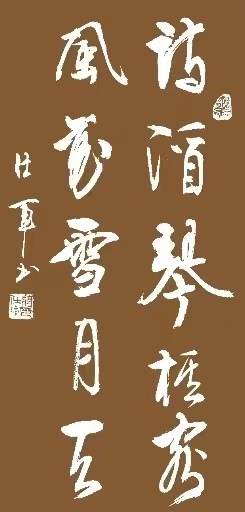 诗酒琴棋客
风花雪月天